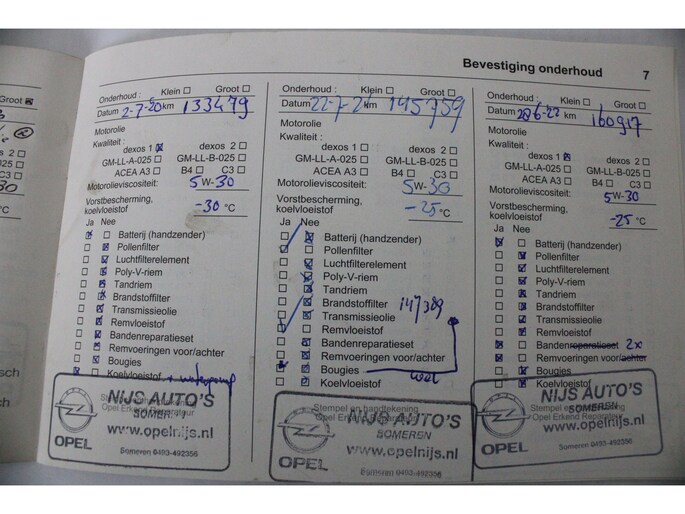 Bevestiging onderhoud 7
Groot
Onderhoud : Klein Groot
Datum 2-7-20 km 133479
Motorolie
Kwaliteit :
dexos 1 dexos 2
GM-LL-A-025 GM-LL-B-025
ACEA A3 B4 C3
Motorolieviscositeit: 5W-30
Vorstbescherming,
koelvloeistof -30 °C
Ja Nee
Batterij (handzender)
Pollenfilter
Luchtfilterelement
Poly-V-riem
Tandriem
Brandstoffilter
Transmissieolie
Remvloeistof
Bandenreparatieset
Remvoeringen voor/achter
Bougies
Koelvloeistof + waterpomp
Stempel en handtekening
Opel Erkend Reparateur
NIJS AUTO'S
SOMEREN
www.opelnijs.nl
OPEL
Someren 0493-492356
Onderhoud : Klein Groot
Datum 22-7-21 km 145759
Motorolie
Kwaliteit :
dexos 1 dexos 2
GM-LL-A-025 GM-LL-B-025
ACEA A3 B4 C3
Motorolieviscositeit: 5W-30
Vorstbescherming,
koelvloeistof -25 °C
Ja Nee
Batterij (handzender)
Pollenfilter
Luchtfilterelement
Poly-V-riem
Tandriem
Brandstoffilter 147389
Transmissieolie
Remvloeistof
Bandenreparatieset
Remvoeringen voor/achter
Bougies wel
Koelvloeistof
Stempel en handtekening
Opel Erkend Reparateur
NIJS AUTO'S
SOMEREN
www.opelnijs.nl
OPEL
Someren 0493-492356
Onderhoud : Klein Groot
Datum 28-6-22 km 160917
Motorolie
Kwaliteit :
dexos 1 dexos 2
GM-LL-A-025 GM-LL-B-025
ACEA A3 B4 C3
Motorolieviscositeit: 5W-30
Vorstbescherming,
koelvloeistof -25 °C
Ja Nee
Batterij (handzender)
Pollenfilter
Luchtfilterelement
Poly-V-riem
Tandriem
Brandstoffilter
Transmissieolie
Remvloeistof
Bandenreparatieset 2x
Remvoeringen voor/achter
Bougies
Koelvloeistof
Stempel en handtekening
Opel Erkend Reparateur
NIJS AUTO'S
SOMEREN
www.opelnijs.nl
OPEL
Someren 0493-492356